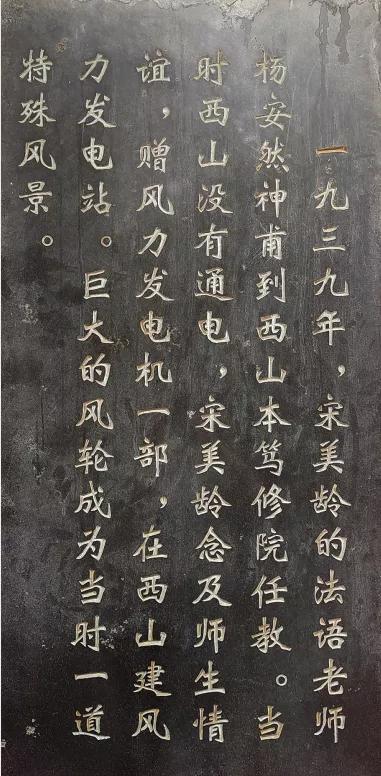 一九三九年，宋美龄的法语老师
杨安然神甫到西山本笃修院任教。当
时西山没有通电，宋美龄念及师生情
谊，赠风力发电机一部，在西山建风
力发电站。巨大的风轮成为当时一道
特殊风景。